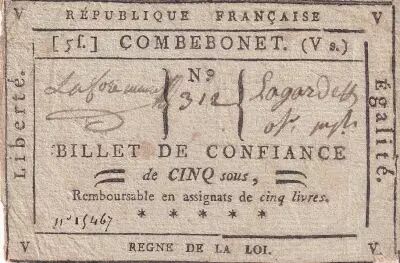 V RÉPUBLIQUE FRANÇAISE V
[5f.] COMBEBONET. (V s.)
Liberté.
Égalité.
No
312
BILLET DE CONFIANCE
de CINQ sous,
Remboursable en assignats de cinq livres.
* * * * *
no 15467
V REGNE DE LA LOI. V